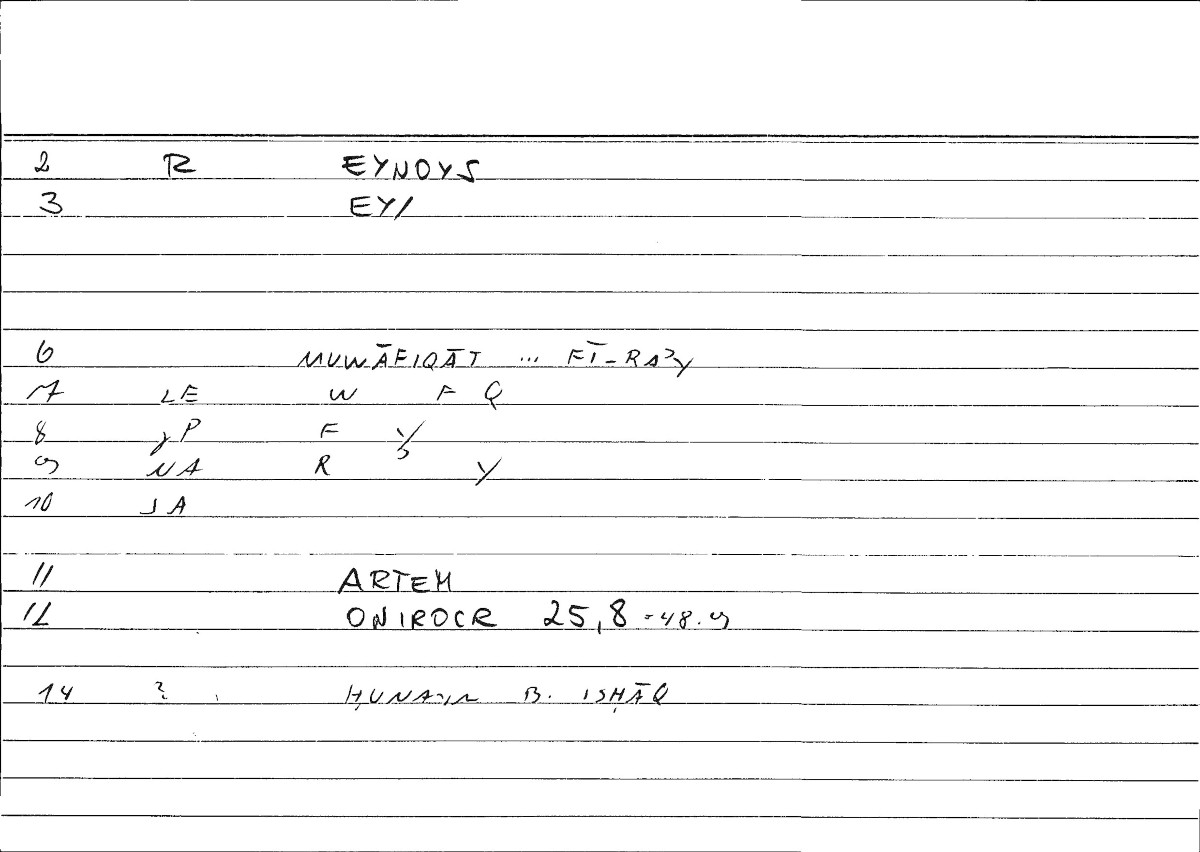 2 R EYNOYS
3 EY/
6 MUWĀFIQĀT ... FĪ-RAʾY
7 LE W F Q
8 γP F
9 NA R Y
10 JA
11 ARTEM
12 ONIROCR 25,8 = 48.9
14 ? ḤUNAYN B. ISḤĀQ